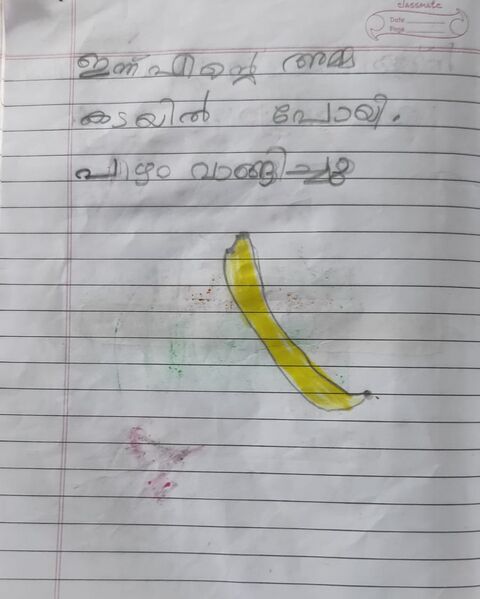 classmate
Date
Page
ഇന്ന് എന്റെ അമ്മ
കടയിൽ പോയി.
പഴം വാങ്ങിച്ചു